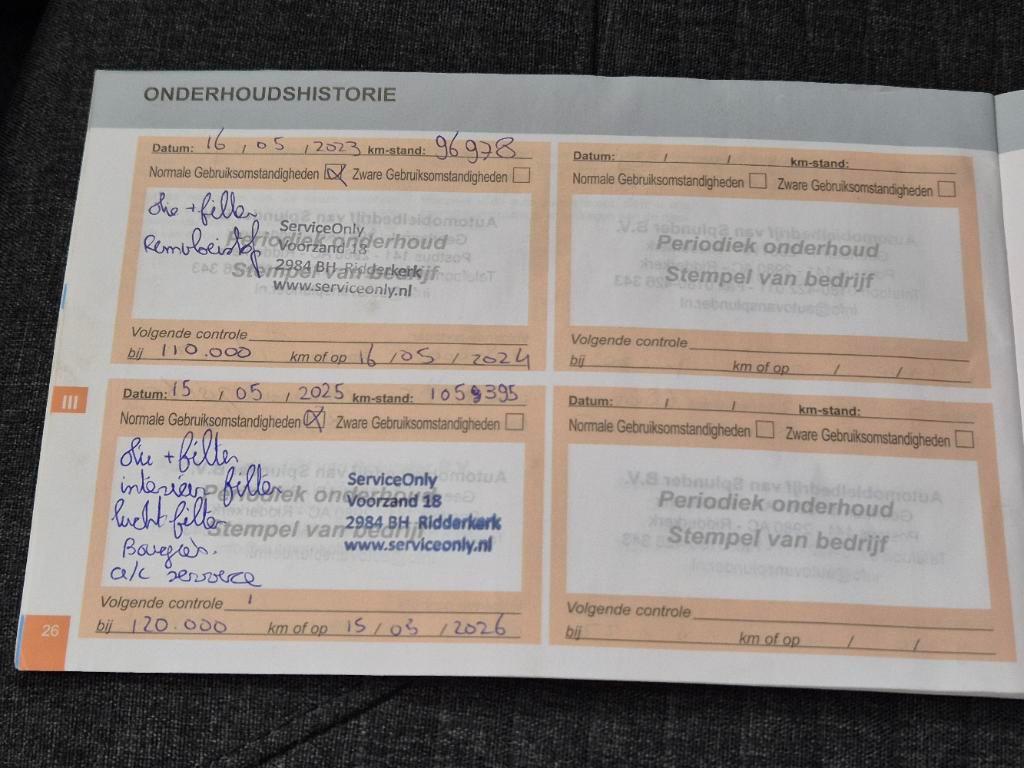 ONDERHOUDSHISTORIE
Datum: 16 / 05 / 2023 km-stand: 96978
Normale Gebruiksomstandigheden ☒ Zware Gebruiksomstandigheden ☐
Olie + filter
Remvloeistof
ServiceOnly
Voorzand 18
2984 BH Ridderkerk
www.serviceonly.nl
Periodiek onderhoud
Stempel van bedrijf
Volgende controle
bij 110.000 km of op 16 / 05 / 2024
Datum: / / km-stand:
Normale Gebruiksomstandigheden ☐ Zware Gebruiksomstandigheden ☐
Periodiek onderhoud
Stempel van bedrijf
Volgende controle
bij km of op / /
III
Datum: 15 / 05 / 2025 km-stand: 1059395
Normale Gebruiksomstandigheden ☒ Zware Gebruiksomstandigheden ☐
Olie + filter
interieur filter
lucht filter
Bougies.
a/c service
ServiceOnly
Voorzand 18
2984 BH Ridderkerk
www.serviceonly.nl
Periodiek onderhoud
Stempel van bedrijf
Volgende controle
bij 120.000 km of op 15 / 05 / 2026
Datum: / / km-stand:
Normale Gebruiksomstandigheden ☐ Zware Gebruiksomstandigheden ☐
Periodiek onderhoud
Stempel van bedrijf
Volgende controle
bij km of op / /
26